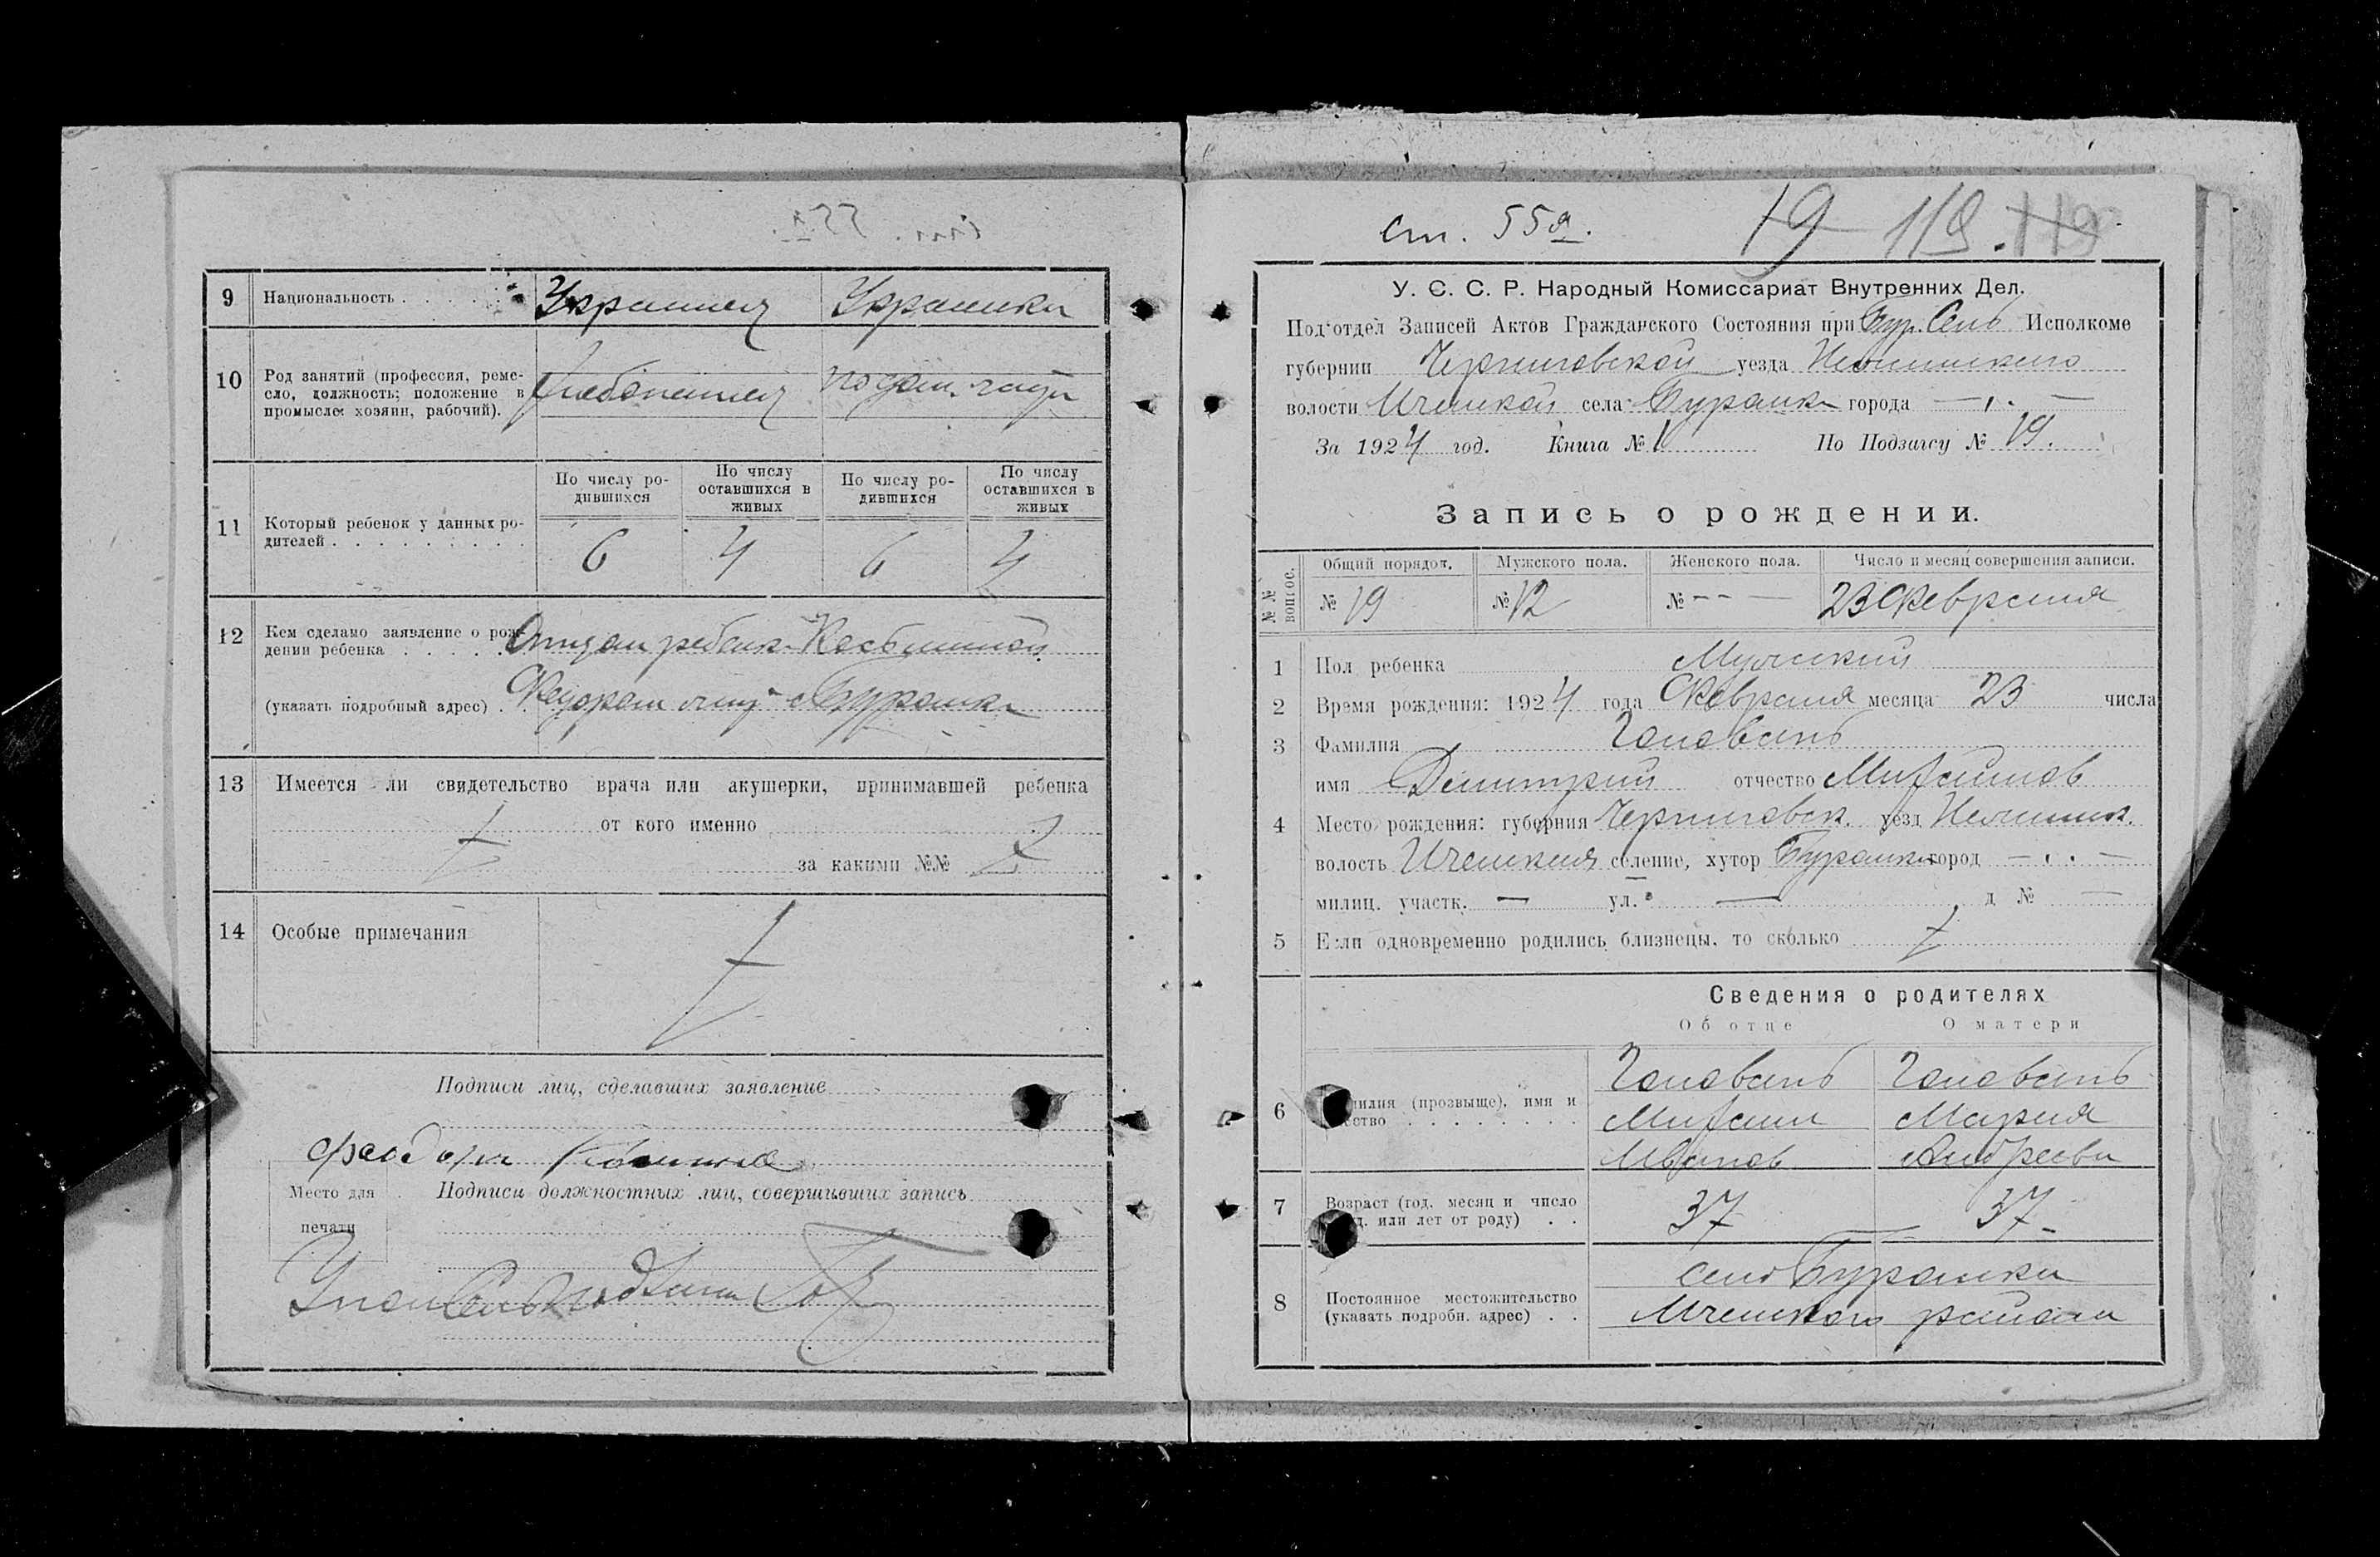 9 Национальность Украинец Украинка
10 Род занятий (профессия, реме-
сло, должность; положение в
промысле: хозяин, рабочий).
Хлебопашец
11 Который ребенок у данных ро-
дителей
По числу ро-
дившихся
По числу
оставшихся в
живых
По числу ро-
дившихся
По числу
оставшихся в
живых
6 4 6 4
12 Кем сделано заявление о рож-
дении ребенка
(указать подробный адрес)
13 Имеется ли свидетельство врача или акушерки, принимавшей ребенка
от кого именно
за какими №№
14 Особые примечания
Подписи лиц, сделавших заявление
Место для
печати
Подписи должностных лиц, совершивших запись
ст. 55а. 19 119. 119
У. С. С. Р. Народный Комиссариат Внутренних Дел.
Подотдел Записей Актов Гражданского Состояния при Бур. Сель Исполкоме
губернии Черниговской уезда Нежинского
волости Иченской села Бурамка города —
За 1924 год. Книга № 1 По Подзагсу № 19.
Запись о рождении.
№№ вопрос.
Общий порядок. Мужского пола. Женского пола. Число и месяц совершения записи.
№ 19 № 12 № - - — 23 Февраля
1 Пол ребенка Мужский
2 Время рождения: 1924 года Февраля месяца 23 числа
3 Фамилия Головань
имя Димитрий отчество Михаилов
4 Место рождения: губерния Черниговск. уезд Нежинск.
волость Иченская селение, хутор Бурамка город —
милиц. участк. — ул. — д № —
5 Если одновременно родились близнецы, то сколько
Сведения о родителях
Об отце О матери
6 милия (прозвыще), имя и
ство
Головань Головань
Михаил Мария
Иванов Андреева
7 Возраст (год, месяц и число
д. или лет от роду) 37 37
8 Постоянное местожительство
(указать подробн. адрес)
село Бурамка
Иченского района